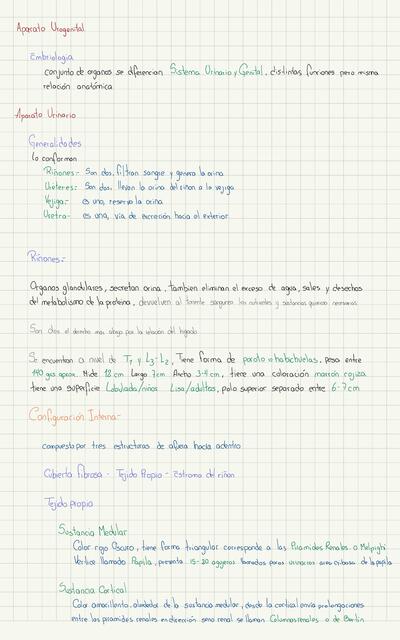 Aparato Urogenital
Embriologia
conjunto de organos se diferencian Sistema Urinario y Genital, distintas funciones pero misma
relación anatómica
Aparato Urinario
Generalidades
lo conforman
Riñones:- Son dos, filtran sangre y genera la orina
Uréteres: Son dos, llevan la orina del riñon a la vejiga
Vejiga:- es una, reserva la orina
Uretra- es una, via de excreción hacia el exterior
Riñones:-
Organos glandulares, secretan orina, tambien eliminan el exceso de agua, sales y desechos
del metabolismo de la proteina, devuelven al torrente sanguineo los nutrientes y sustancias quimicas necesarias
Son dos el derecho mas abajo por la relación del higado
Se encuentran a nivel de T11 y L3-L2, Tiene forma de poroto o habichuelas, pesa entre
140 grs aprox. Mide 12 cm Largo 7cm Ancho 3-4 cm, tiene una coloración marrón rojiza
tiene una superficie Lobulada/niños Lisa/adultos, polo superior separado entre 6-7 cm
Configuración Interna:-
compuesta por tres estructuras de afuera hacia adentro
Cubierta fibrosa - Tejido Propio - Estroma del riñon
Tejido propio
Sustancia Medular
Color rojo Oscuro, tiene forma triangular corresponde a las Piramides Renales o Malpighi
Vertice llamado Papila, presenta 15-20 agujeros llamados poros urinarios area cribosa de la papila
Sustancia Cortical
Color amarillento, alrededor de la sustancia medular, desde la cortical envia prolongaciones
entre las piramides renales en dirección seno renal se llaman Columnas renales o de Bertin